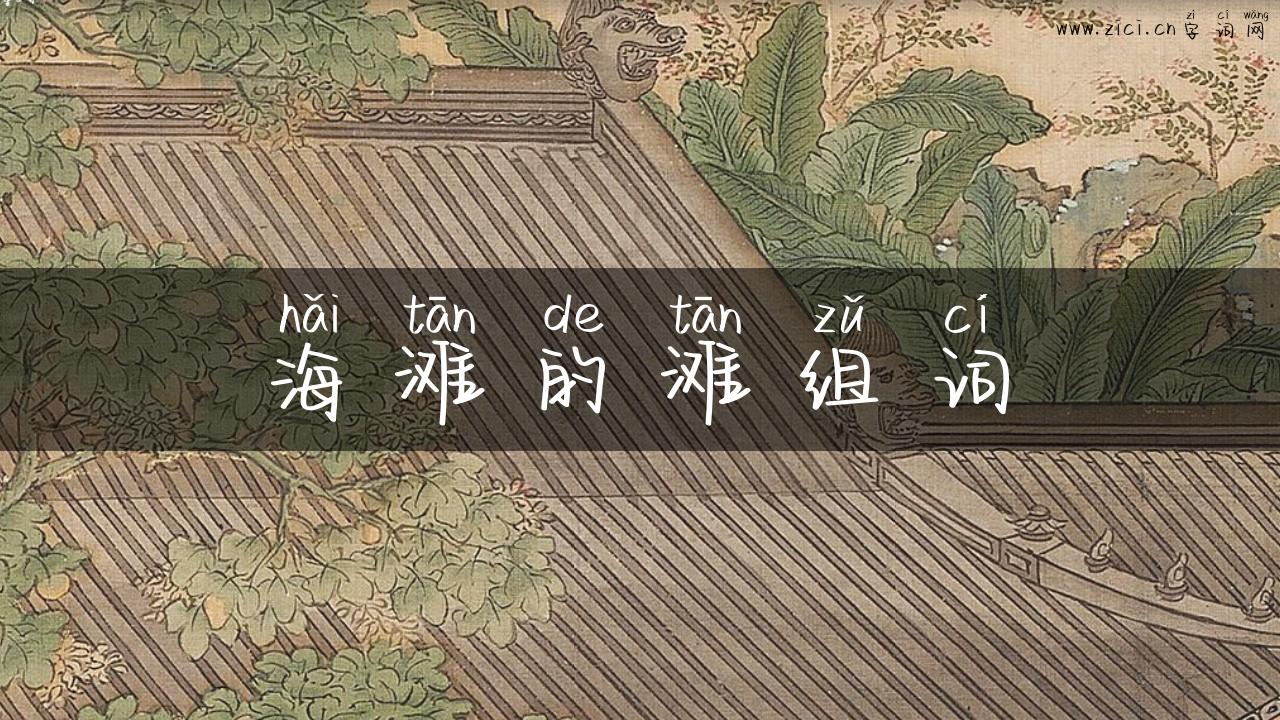 zì cí wǎng
www.zici.cn 字词网
hǎi tān de tān zǔ cí
海滩的滩组词